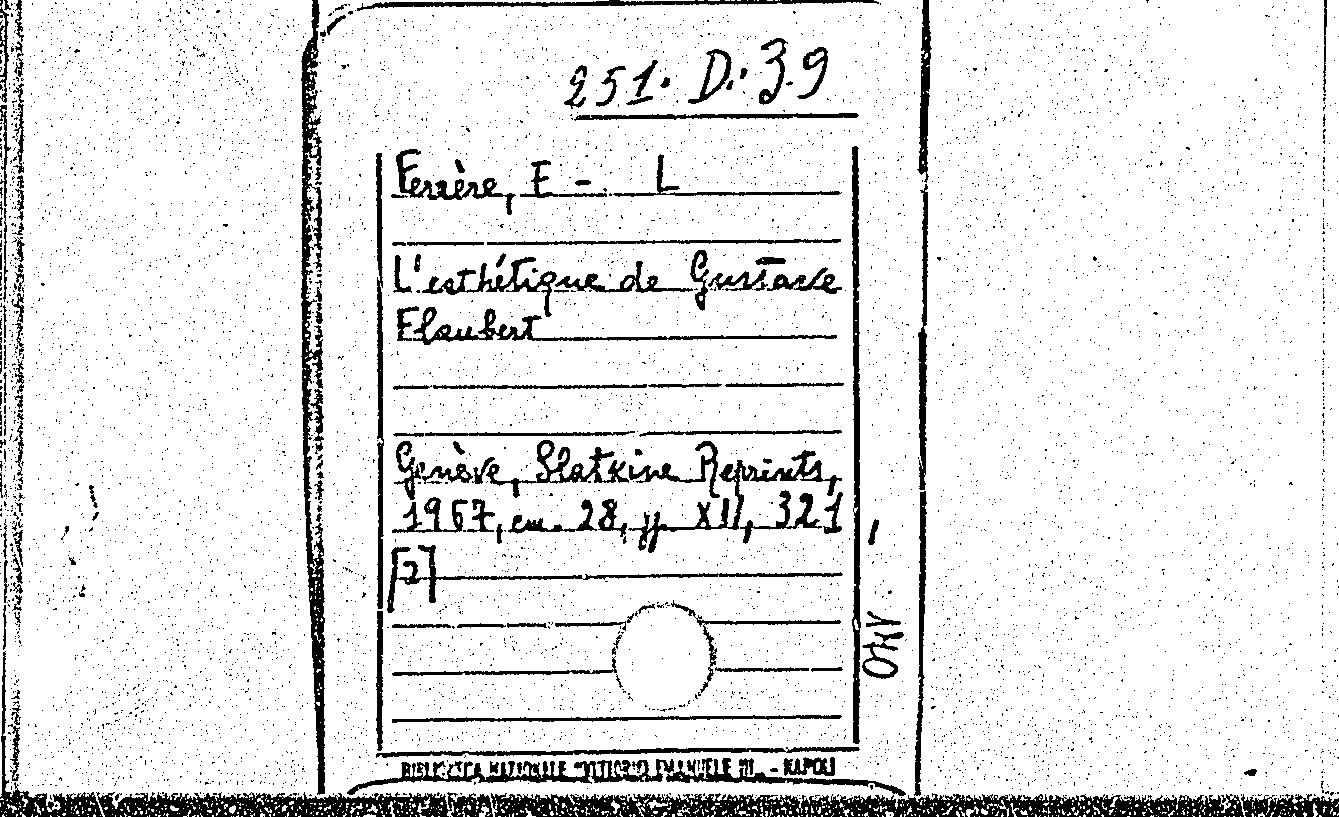 251. D. 39
Ferrère, E - L
L'esthétique de Gustave
Flaubert
Genève, Slatkine Reprints,
1967, cm. 28, pp. XII, 321,
[2]
BIBLIOTECA NAZIONALE "VITTORIO EMANUELE III" - NAPOLI